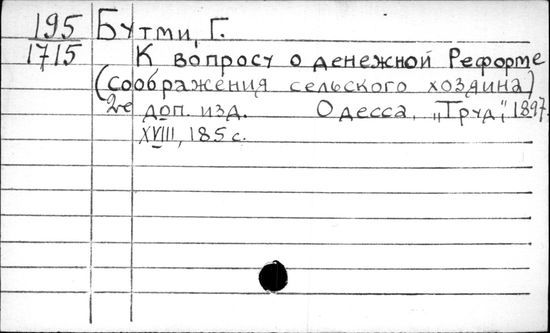 195 Бутми, Г.
1715 К вопросу о денежной Реформе
(соображения сельского хозяина)
2ое доп. изд. Одесса, „Труд", 1897.
XVIII, 185 с.